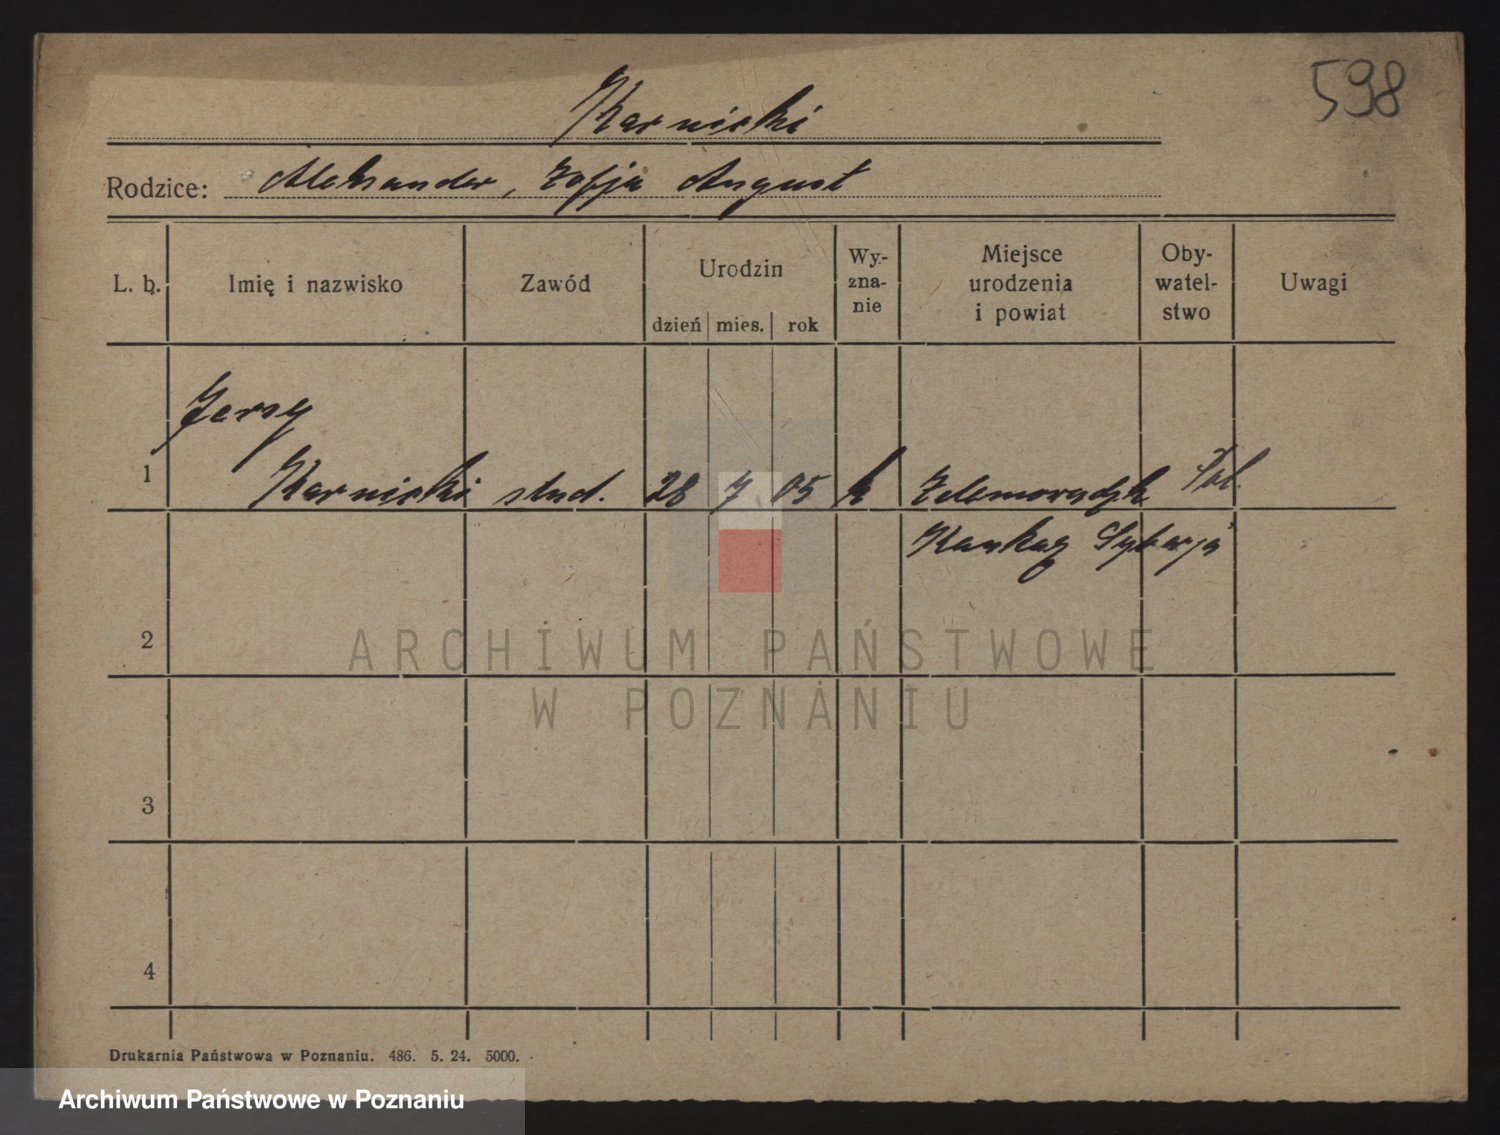 598
Karnicki
Rodzice: Aleksander, Zofja August
L. b. Imię i nazwisko Zawód Urodzin dzień mies. rok Wy-zna-nie Miejsce urodzenia i powiat Oby-watel-stwo Uwagi
Jerzy
1 Karnicki stud. 28 7 05 k
Kaukaz Syberja
2
ARCHIWUM PAŃSTWOWE
W POZNANIU
3
4
Drukarnia Państwowa w Poznaniu. 486. 5. 24. 5000.
Archiwum Państwowe w Poznaniu